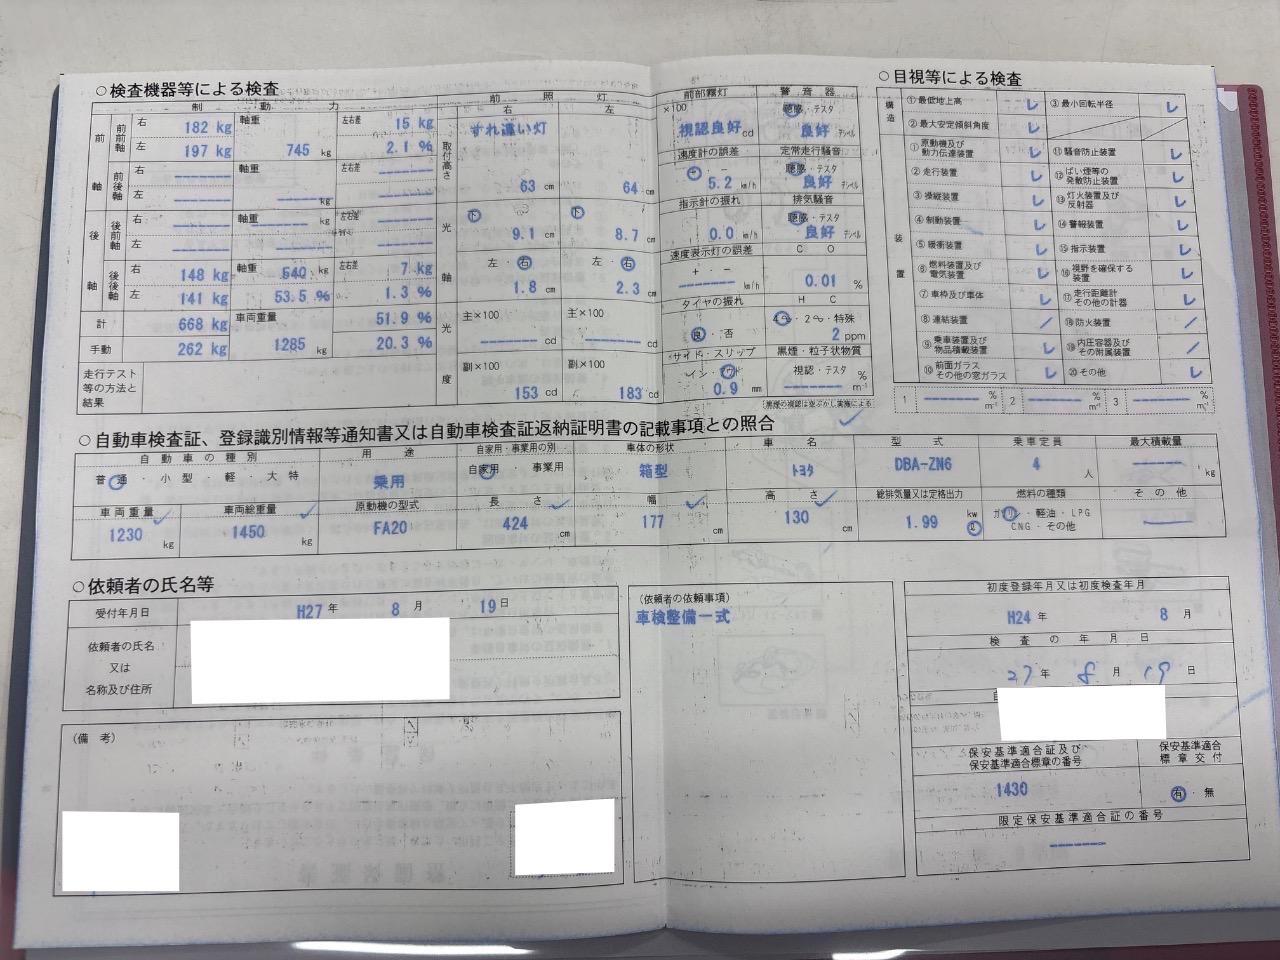 ○検査機器等による検査
制動力
前軸
前前軸
右 182 kg 軸重 左右差 15 kg
左 197 kg 745 kg 2.1 %
前後軸
右 ------- 軸重 左右差 -------
左 ------- ------- kg -------
後軸
後前軸
右 ------- 軸重 ------- kg 左右差 -------
左 ------- ------- -------
後後軸
右 148 kg 軸重 540 kg 左右差 7 kg
左 141 kg 53.5 % 1.3 %
計 668 kg 車両重量 51.9 %
手動 262 kg 1285 kg 20.3 %
走行テスト
等の方法と
結果
前照灯
右 左
すれ違い灯
取付高さ 63 cm 64 cm
光軸
下 下
9.1 cm 8.7 cm
左・右 左・右
1.8 cm 2.3 cm
光度
主×100 主×100
------- cd ------- cd
副×100 副×100
153 cd 183 cd
前部霧灯
×100
視認良好 cd
速度計の誤差
+・-
5.2 km/h
指示計の振れ
0.0 km/h
速度表示灯の誤差
+・-
------- km/h
タイヤの振れ
良・否
サイド・スリップ
イン・アウト
0.9 mm
警音器
聴感・テスタ
良好 デシベル
定常走行騒音
聴感・テスタ
良好 デシベル
排気騒音
聴感・テスタ
良好 デシベル
CO
0.01 %
HC
4サ・2サ・特殊
2 ppm
黒煙・粒子状物質
視認・テスタ
------- % m⁻¹
黒煙の視認は空ぶかし実施による
○目視等による検査
構造
①最低地上高 レ
②最大安定傾斜角度 レ
③最小回転半径 レ
装置
①原動機及び
動力伝達装置 レ
②走行装置 レ
③操縦装置 レ
④制動装置 レ
⑤緩衝装置 レ
⑥燃料装置及び
電気装置 レ
⑦車枠及び車体 レ
⑧連結装置 /
⑨乗車装置及び
物品積載装置 レ
⑩前面ガラス
その他の窓ガラス レ
⑪騒音防止装置 レ
⑫ばい煙等の
発散防止装置 レ
⑬灯火装置及び
反射器 レ
⑭警報装置 レ
⑮指示装置 レ
⑯視野を確保する
装置 レ
⑰走行距離計
その他の計器 レ
⑱防火装置 /
⑲内圧容器及び
その附属装置 /
⑳その他 レ
1 ------- % m⁻¹ 2 ------- % m⁻¹ 3 ------- % m⁻¹
○自動車検査証、登録識別情報等通知書又は自動車検査証返納証明書の記載事項との照合
自動車の種別 用途 自家用・事業用の別 車体の形状 車名 型式 乗車定員 最大積載量
普通・小型・軽・大特 乗用 自家用・事業用 箱型 トヨタ DBA-ZN6 4 人 ------- kg
車両重量 車両総重量 原動機の型式 長さ 幅 高さ 総排気量又は定格出力 燃料の種類 その他
1230 kg 1450 kg FA20 424 cm 177 cm 130 cm 1.99 kw ℓ ガソリン・軽油・LPG
CNG・その他
○依頼者の氏名等
受付年月日 H27 年 8 月 19 日
依頼者の氏名
又は
名称及び住所
(依頼者の依頼事項)
車検整備一式
(備考)
初度登録年月又は初度検査年月
H24 年 8 月
検査の年月日
27 年 8 月 19 日
保安基準適合証及び
保安基準適合標章の番号
1430
保安基準適合
標章交付
有・無
限定保安基準適合証の番号
-------